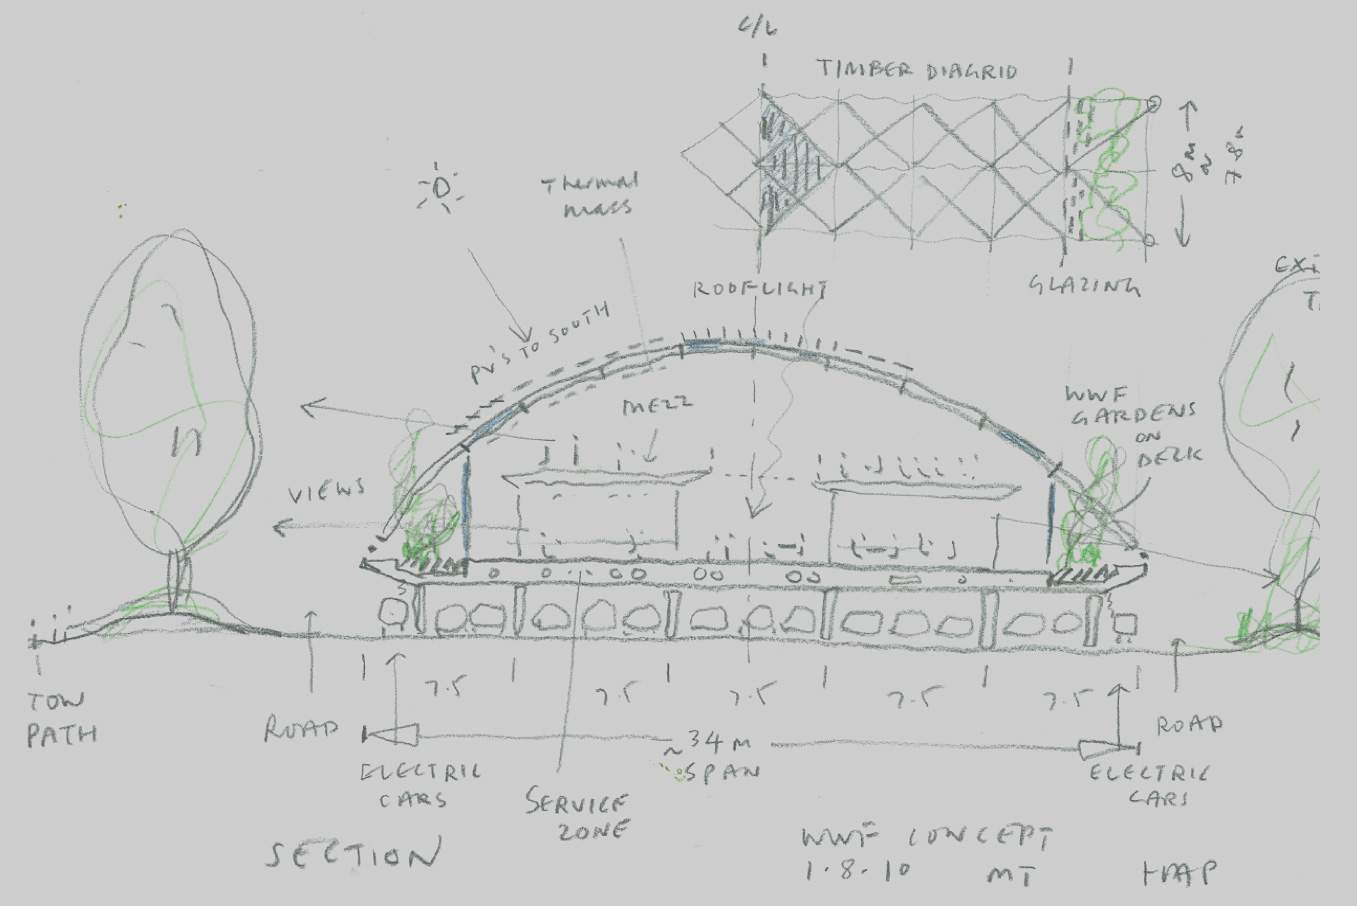 C/L
TIMBER DIAGRID
Thermal
mass
ROOFLIGHT
GLAZING
PV'S TO SOUTH
MEZZ
WWF
GARDENS
ON
DECK
VIEWS
TOW
PATH
ROAD
7.5
7.5
7.5
7.5
7.5
ROAD
~34M
SPAN
ELECTRIC
CARS
SERVICE
ZONE
ELECTRIC
CARS
SECTION
WWF CONCEPT
1.8.10 MT